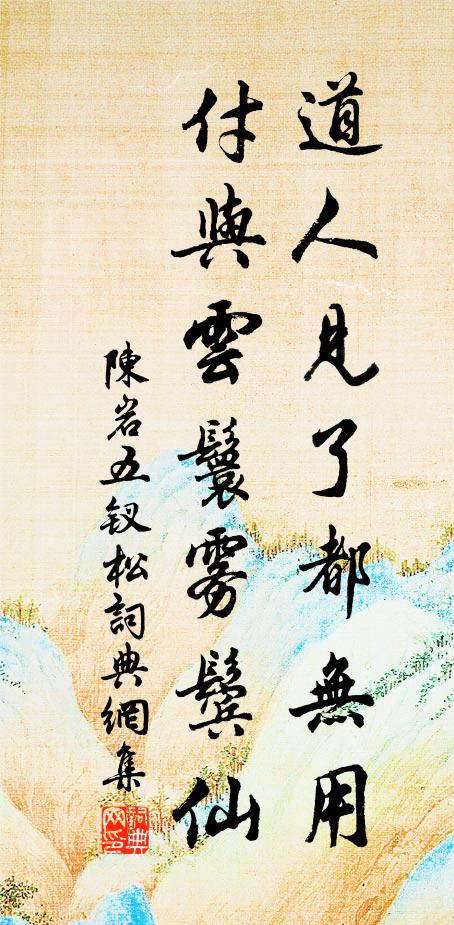 道人見了都無用
付與雲鬟霧鬢仙
陳岩五釵松詞典網集
詞典网印